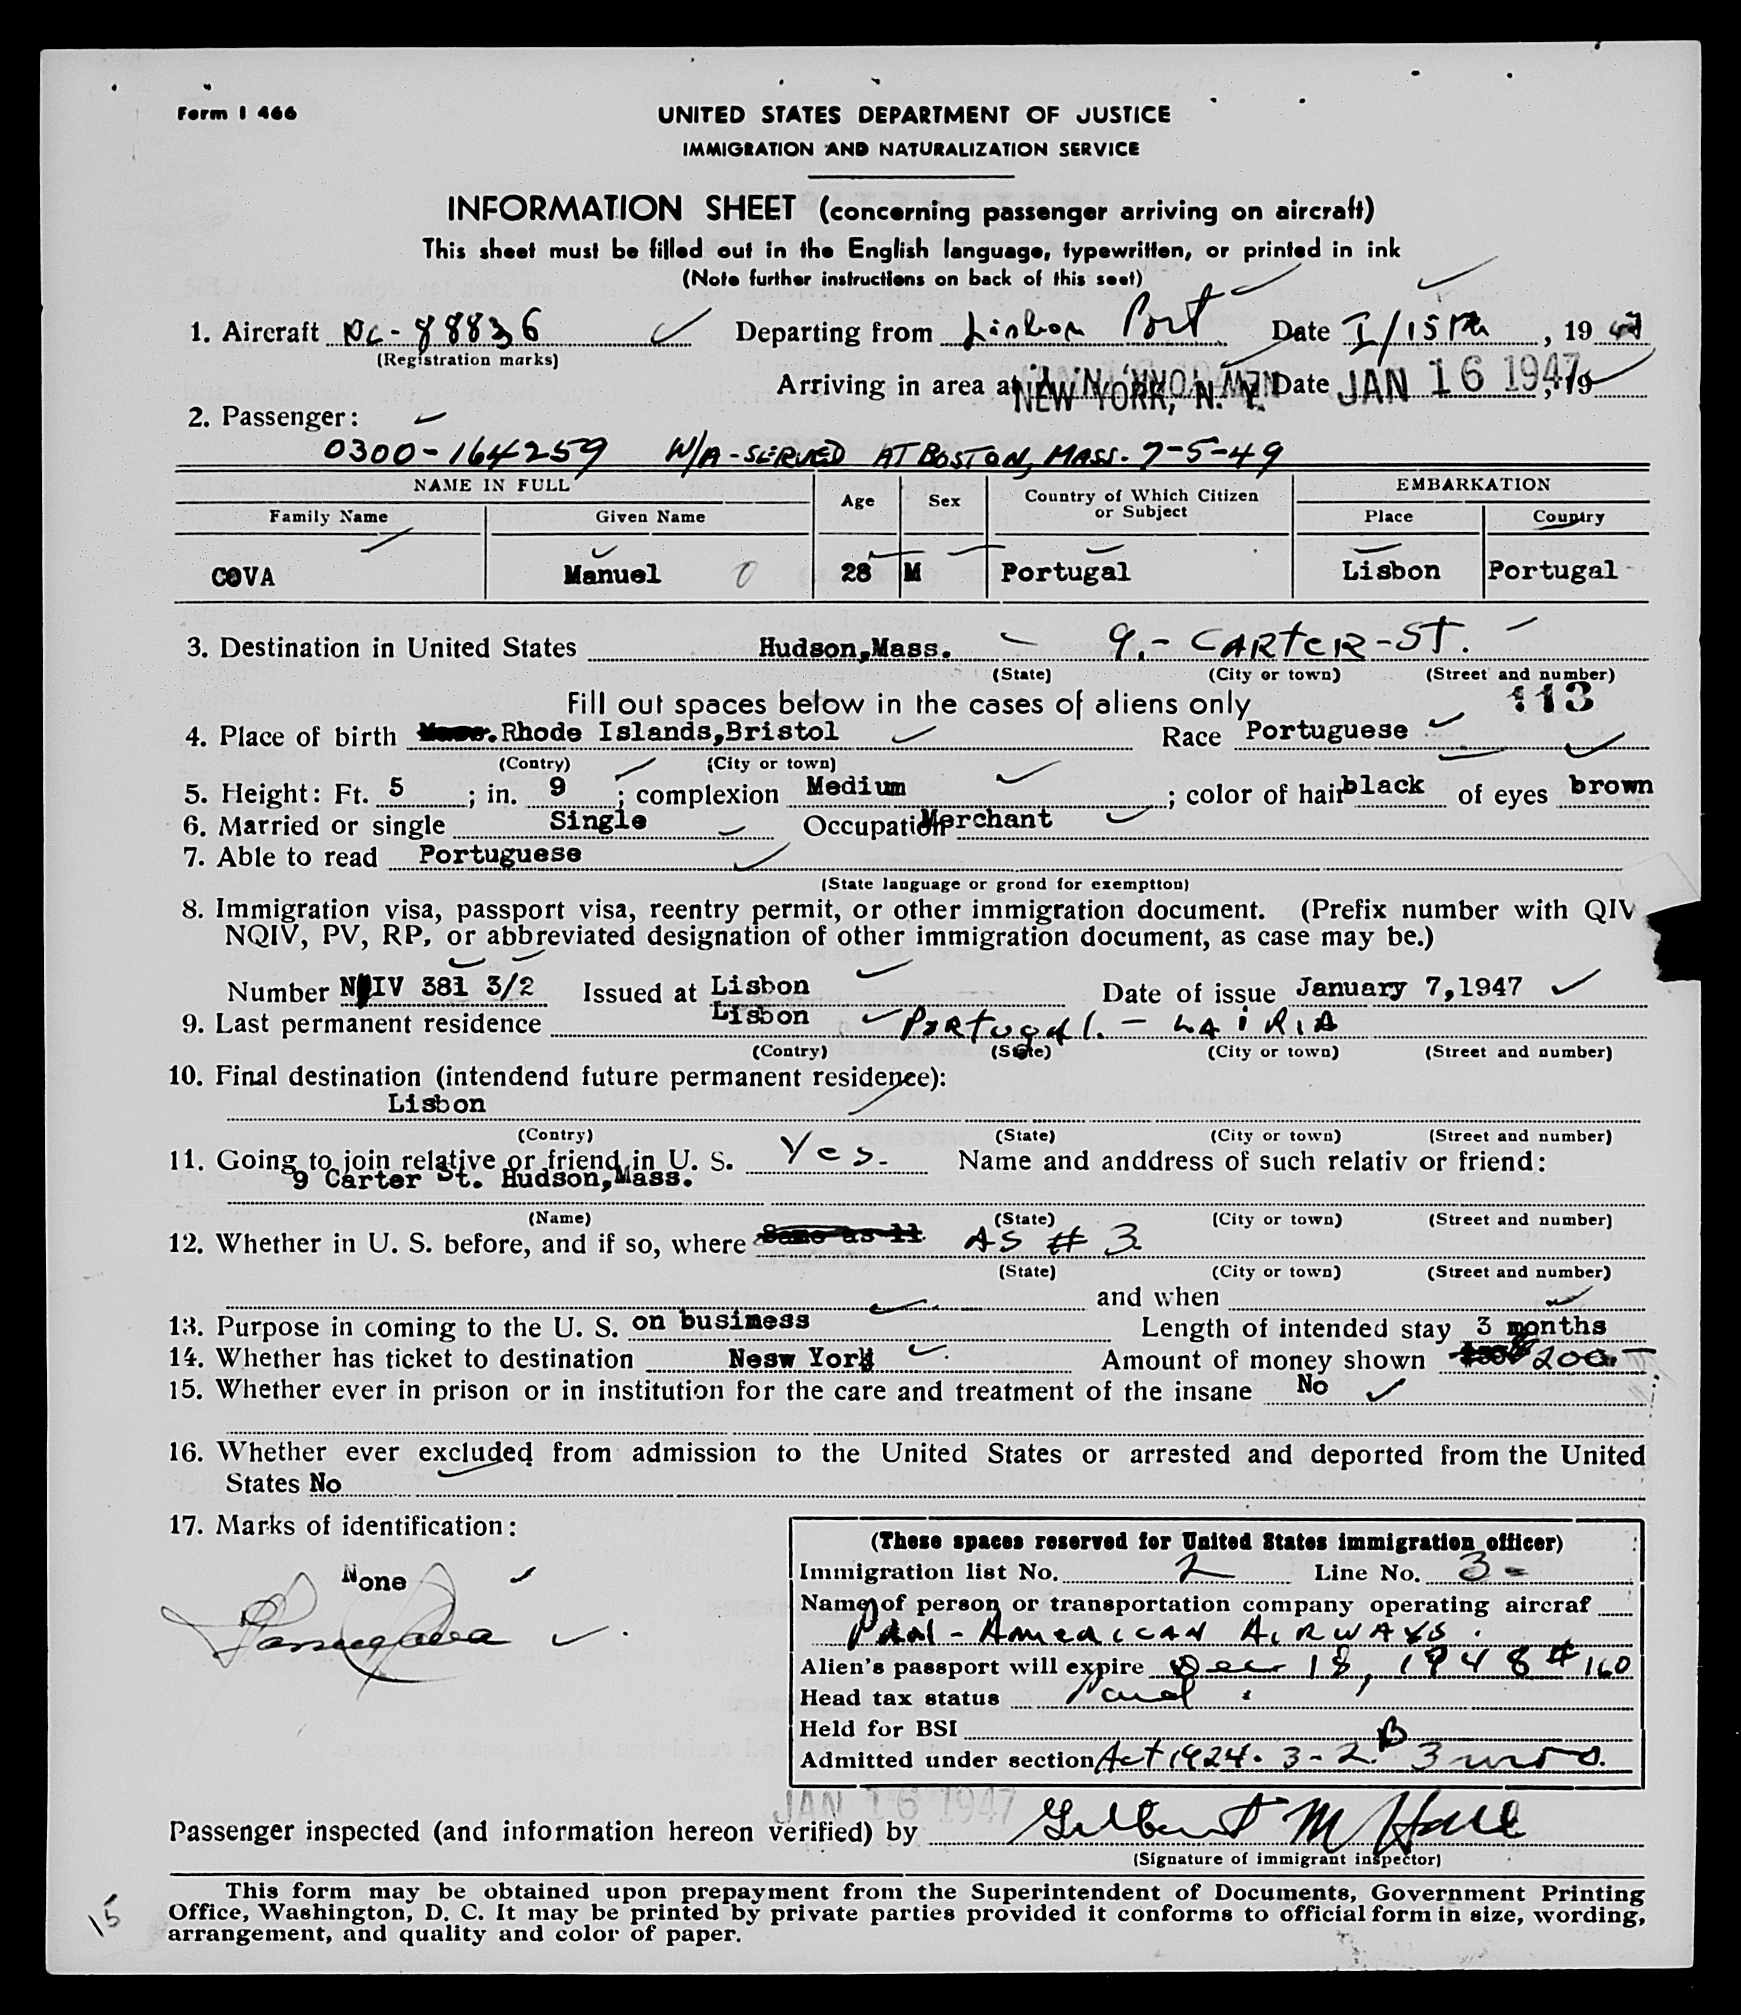 Form I 466
UNITED STATES DEPARTMENT OF JUSTICE
IMMIGRATION AND NATURALIZATION SERVICE
INFORMATION SHEET (concerning passenger arriving on aircraft)
This sheet must be filled out in the English language, typewritten, or printed in ink
(Note further instructions on back of this seet)
1. Aircraft NC-88836 Departing from Lisbon Port Date I/15th, 1947
(Registration marks)
Arriving in area at NEW YORK, N. Y. Date JAN 16 1947, 19
2. Passenger:
0300-164259 W/A-SERVED AT BOSTON, MASS. 7-5-49
NAME IN FULL Age Sex Country of Which Citizen or Subject EMBARKATION
Family Name Given Name Place Country
COVA Manuel 0 28 M Portugal Lisbon Portugal
3. Destination in United States Hudson,Mass. 9.-CARTER-ST.
(State) (City or town) (Street and number)
Fill out spaces below in the cases of aliens only 113
4. Place of birth Rhode Islands,Bristol Race Portuguese
(Contry) (City or town)
5. Height: Ft. 5; in. 9; complexion Medium; color of hair black of eyes brown
6. Married or single Single Occupation Merchant
7. Able to read Portuguese
(State language or grond for exemption)
8. Immigration visa, passport visa, reentry permit, or other immigration document. (Prefix number with QIV
NQIV, PV, RP, or abbreviated designation of other immigration document, as case may be.)
Number NIV 381 3/2 Issued at Lisbon Date of issue January 7,1947
9. Last permanent residence Lisbon PORTugal. - LAIRIA
(Contry) (State) (City or town) (Street and number)
10. Final destination (intendend future permanent residence):
Lisbon
(Contry) (State) (City or town) (Street and number)
11. Going to join relative or friend in U. S. Yes. Name and anddress of such relativ or friend:
9 Carter St. Hudson,Mass.
(Name) (State) (City or town) (Street and number)
12. Whether in U. S. before, and if so, where Same as 11 AS # 3
(State) (City or town) (Street and number)
and when
13. Purpose in coming to the U. S. on business Length of intended stay 3 months
14. Whether has ticket to destination Nesw York Amount of money shown 200.
15. Whether ever in prison or in institution for the care and treatment of the insane No
16. Whether ever excluded from admission to the United States or arrested and deported from the United
States No
17. Marks of identification:
None
(These spaces reserved for United States immigration officer)
Immigration list No. 2 Line No. 3
Name of person or transportation company operating aircraf
PAN-AMERICAN AIRWAYS.
Alien's passport will expire Dec 18, 1948 #160
Head tax status Paid
Held for BSI
Admitted under section Act 1924. 3-2. B 3 mos.
JAN 16 1947
Passenger inspected (and information hereon verified) by Gilbert M Hall
(Signature of immigrant inspector)
This form may be obtained upon prepayment from the Superintendent of Documents, Government Printing
Office, Washington, D. C. It may be printed by private parties provided it conforms to official form in size, wording,
arrangement, and quality and color of paper.
15